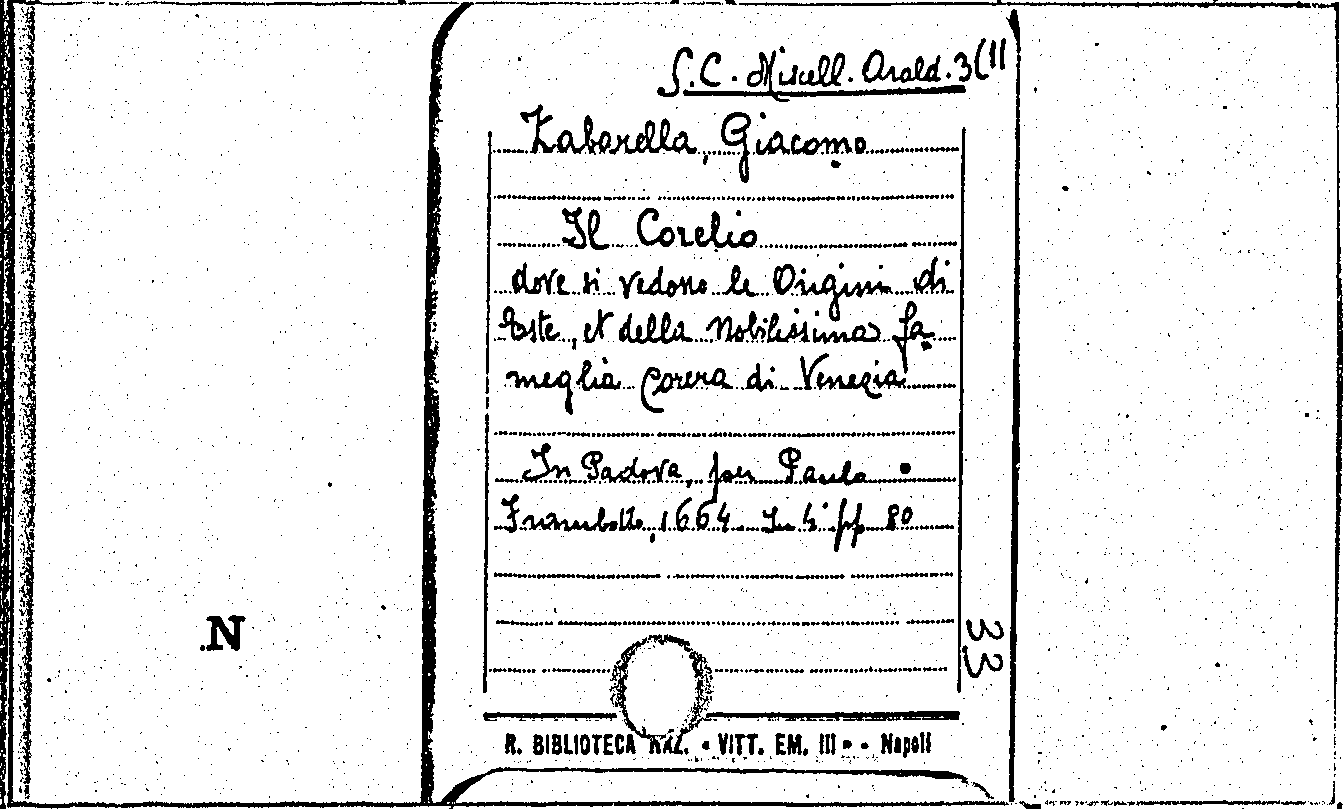 S.C. Miscell. Arald. 3(11
Zabarella, Giacomo
Il Corelio
dove si vedono le Origini di
Este, et della nobilissima fa
meglia Corera di Venezia
In Padova, per Paulo
Frambotto, 1664 In 4° pp 80
33
N
R. BIBLIOTECA NAZ. «VITT. EM. III» - Napoli